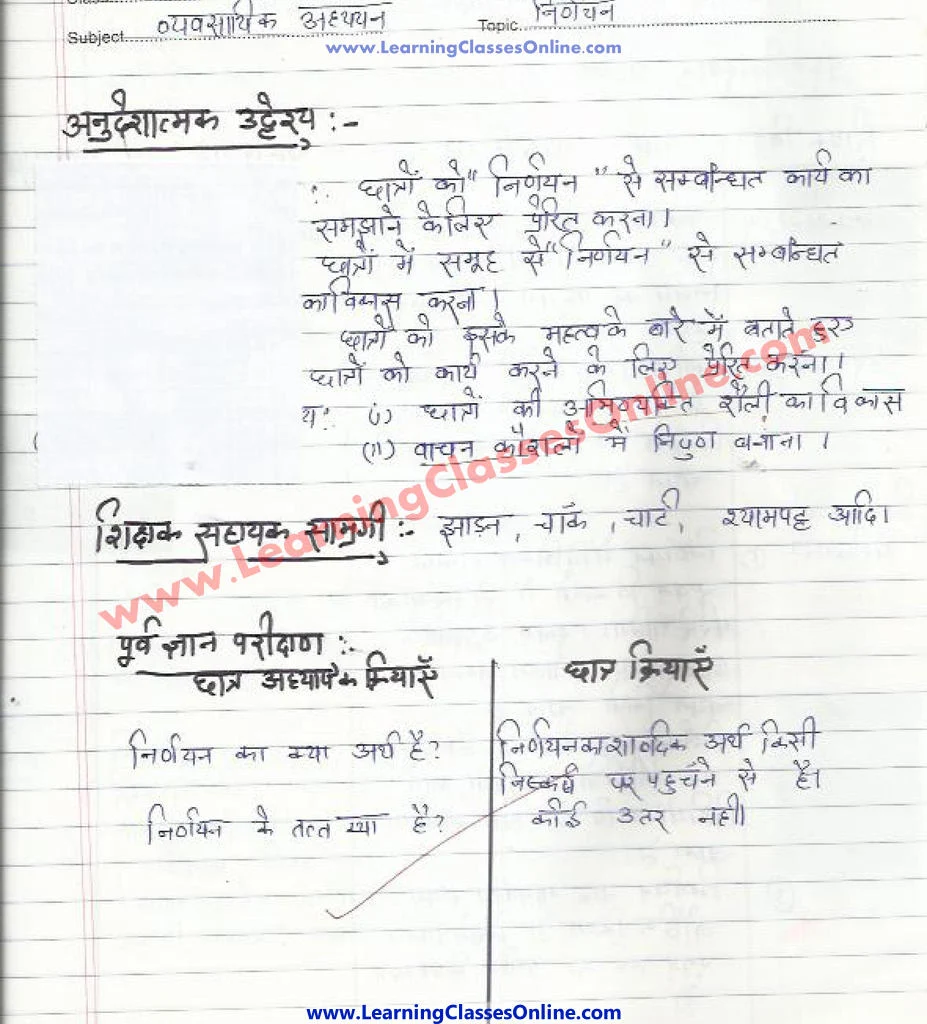 Subject व्यवसायिक अध्ययन Topic निर्णयन
www.LearningClassesOnline.com
अनुदेशात्मक उद्देश्य :-
∴ छात्रों को "निर्णयन" से सम्बन्धित कार्य का
समझाने के लिए प्रेरित करना।
छात्रों में समूह से "निर्णयन" से सम्बन्धित
का विकास करना।
छात्रों को इसके महत्व के बारे में बताते हुए
छात्रों को कार्य करने के लिए प्रेरित करना।
य: (i) छात्रों की अभिव्यक्ति शैली का विकास
(ii) वाचन कौशलों में निपुण बनाना।
शिक्षक सहायक सामग्री :- झाड़न, चाँक, चार्ट, श्यामपट्ट आदि।
www.LearningClassesOnline.com
पूर्व ज्ञान परीक्षण :-
छात्र अध्यापक क्रियाएँ छात्र क्रियाएँ
निर्णयन का क्या अर्थ है? निर्णयन का शाब्दिक अर्थ किसी
निष्कर्ष पर पहुचँने से है।
निर्णयन के तत्त क्या है? कोई उतर नही।
www.LearningClassesOnline.com